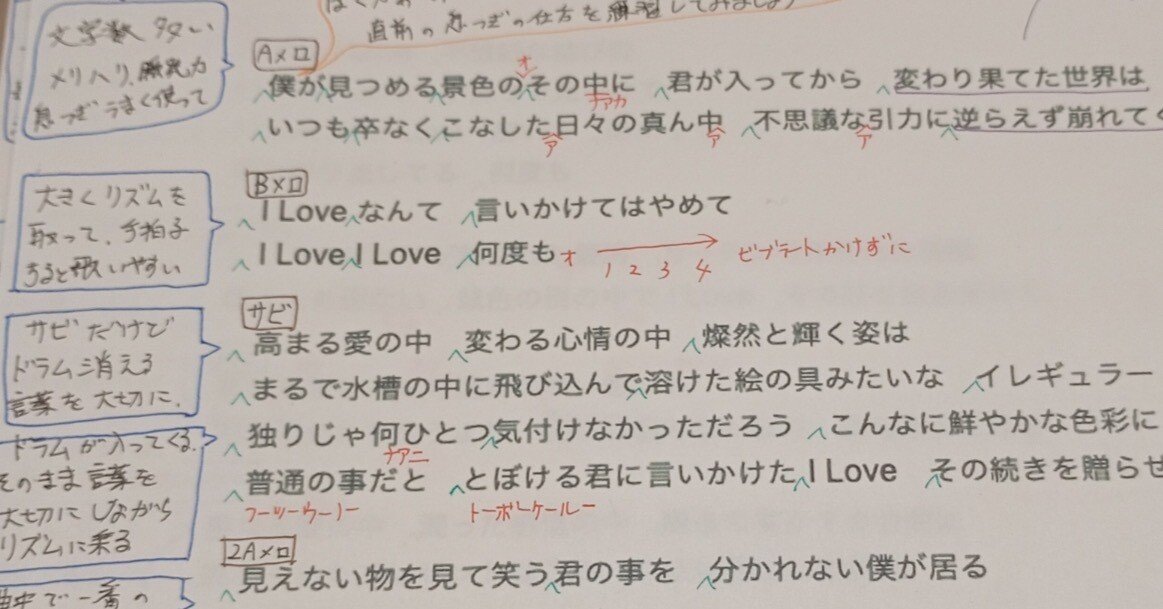 直前の息つぎの仕方を練習してみましょう
文字数多い
メリハリ、脱力
息つぎうまく使って
Aメロ
オ
僕が見つめる景色のその中に 君が入ってから 変わり果てた世界は
ナアカ
いつも卒なくこなした日々の真ん中 不思議な引力に逆らえず崩れてく
ア ア ア
大きくリズムを
取って、手拍子
すると歌いやすい
Bメロ
I Love なんて 言いかけてはやめて
I Love I Love 何度も オ 1 2 3 4 ビブラートかけずに
サビだけで
ドラム消える
言葉を大切に、
サビ
高まる愛の中 変わる心情の中 燦然と輝く姿は
まるで水槽の中に飛び込んで溶けた絵の具みたいな イレギュラー
ドラムが入ってくる。
そのまま言葉を
大切にしながら
リズムに乗る
独りじゃ何ひとつ気付けなかっただろう こんなに鮮やかな色彩に
ナアニ
普通の事だと とぼける君に言いかけた I Love その続きを贈らせ
フーツーウーノー トーボーケールー
2Aメロ
見えない物を見て笑う君の事を 分かれない僕が居る
中で一番の